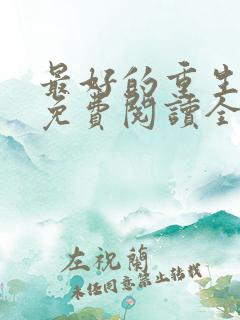 最好的重生
免費閱讀全
左祝蘭
未经同意禁止转载